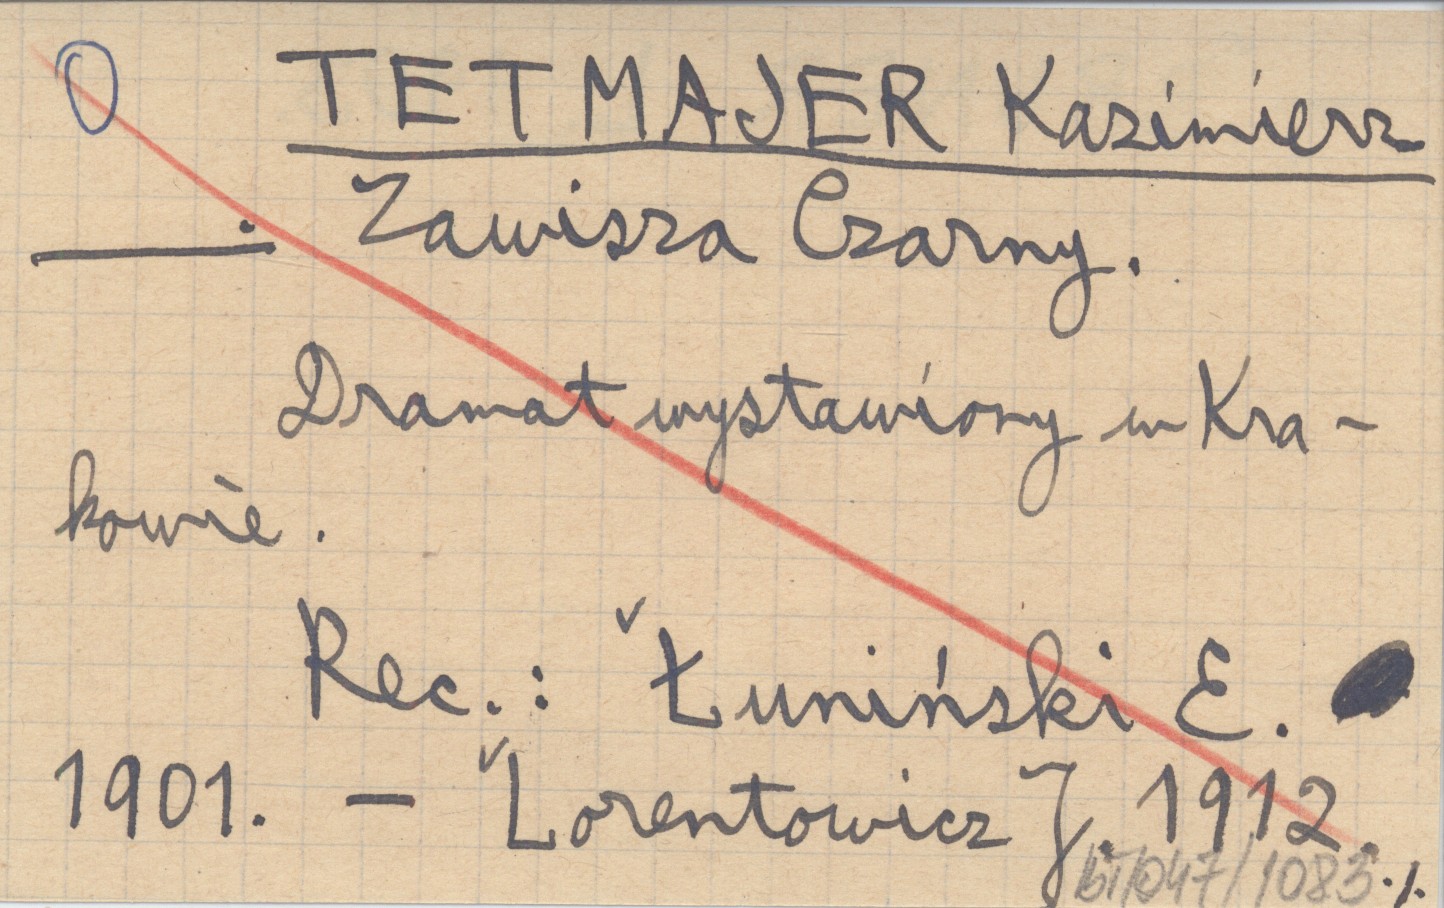 O TETMAJER Kazimierz
. Zawisza Czarny.
Dramat wystawiony w Kra-
kowie.
Rec.: Łuniński E.
1901. — Lorentowicz J. 1912.
/1083 ./.